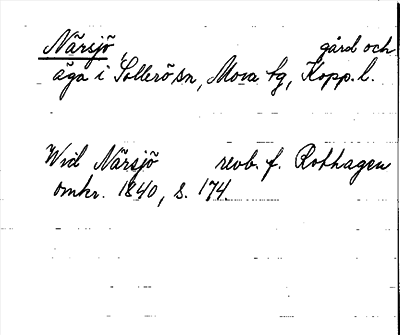 Närsjö, gård och
äga i Sollerö sn, Mora tg, Kopp. l.
Wid Närsjö revb. f. Rothagen
omkr. 1840, s. 174